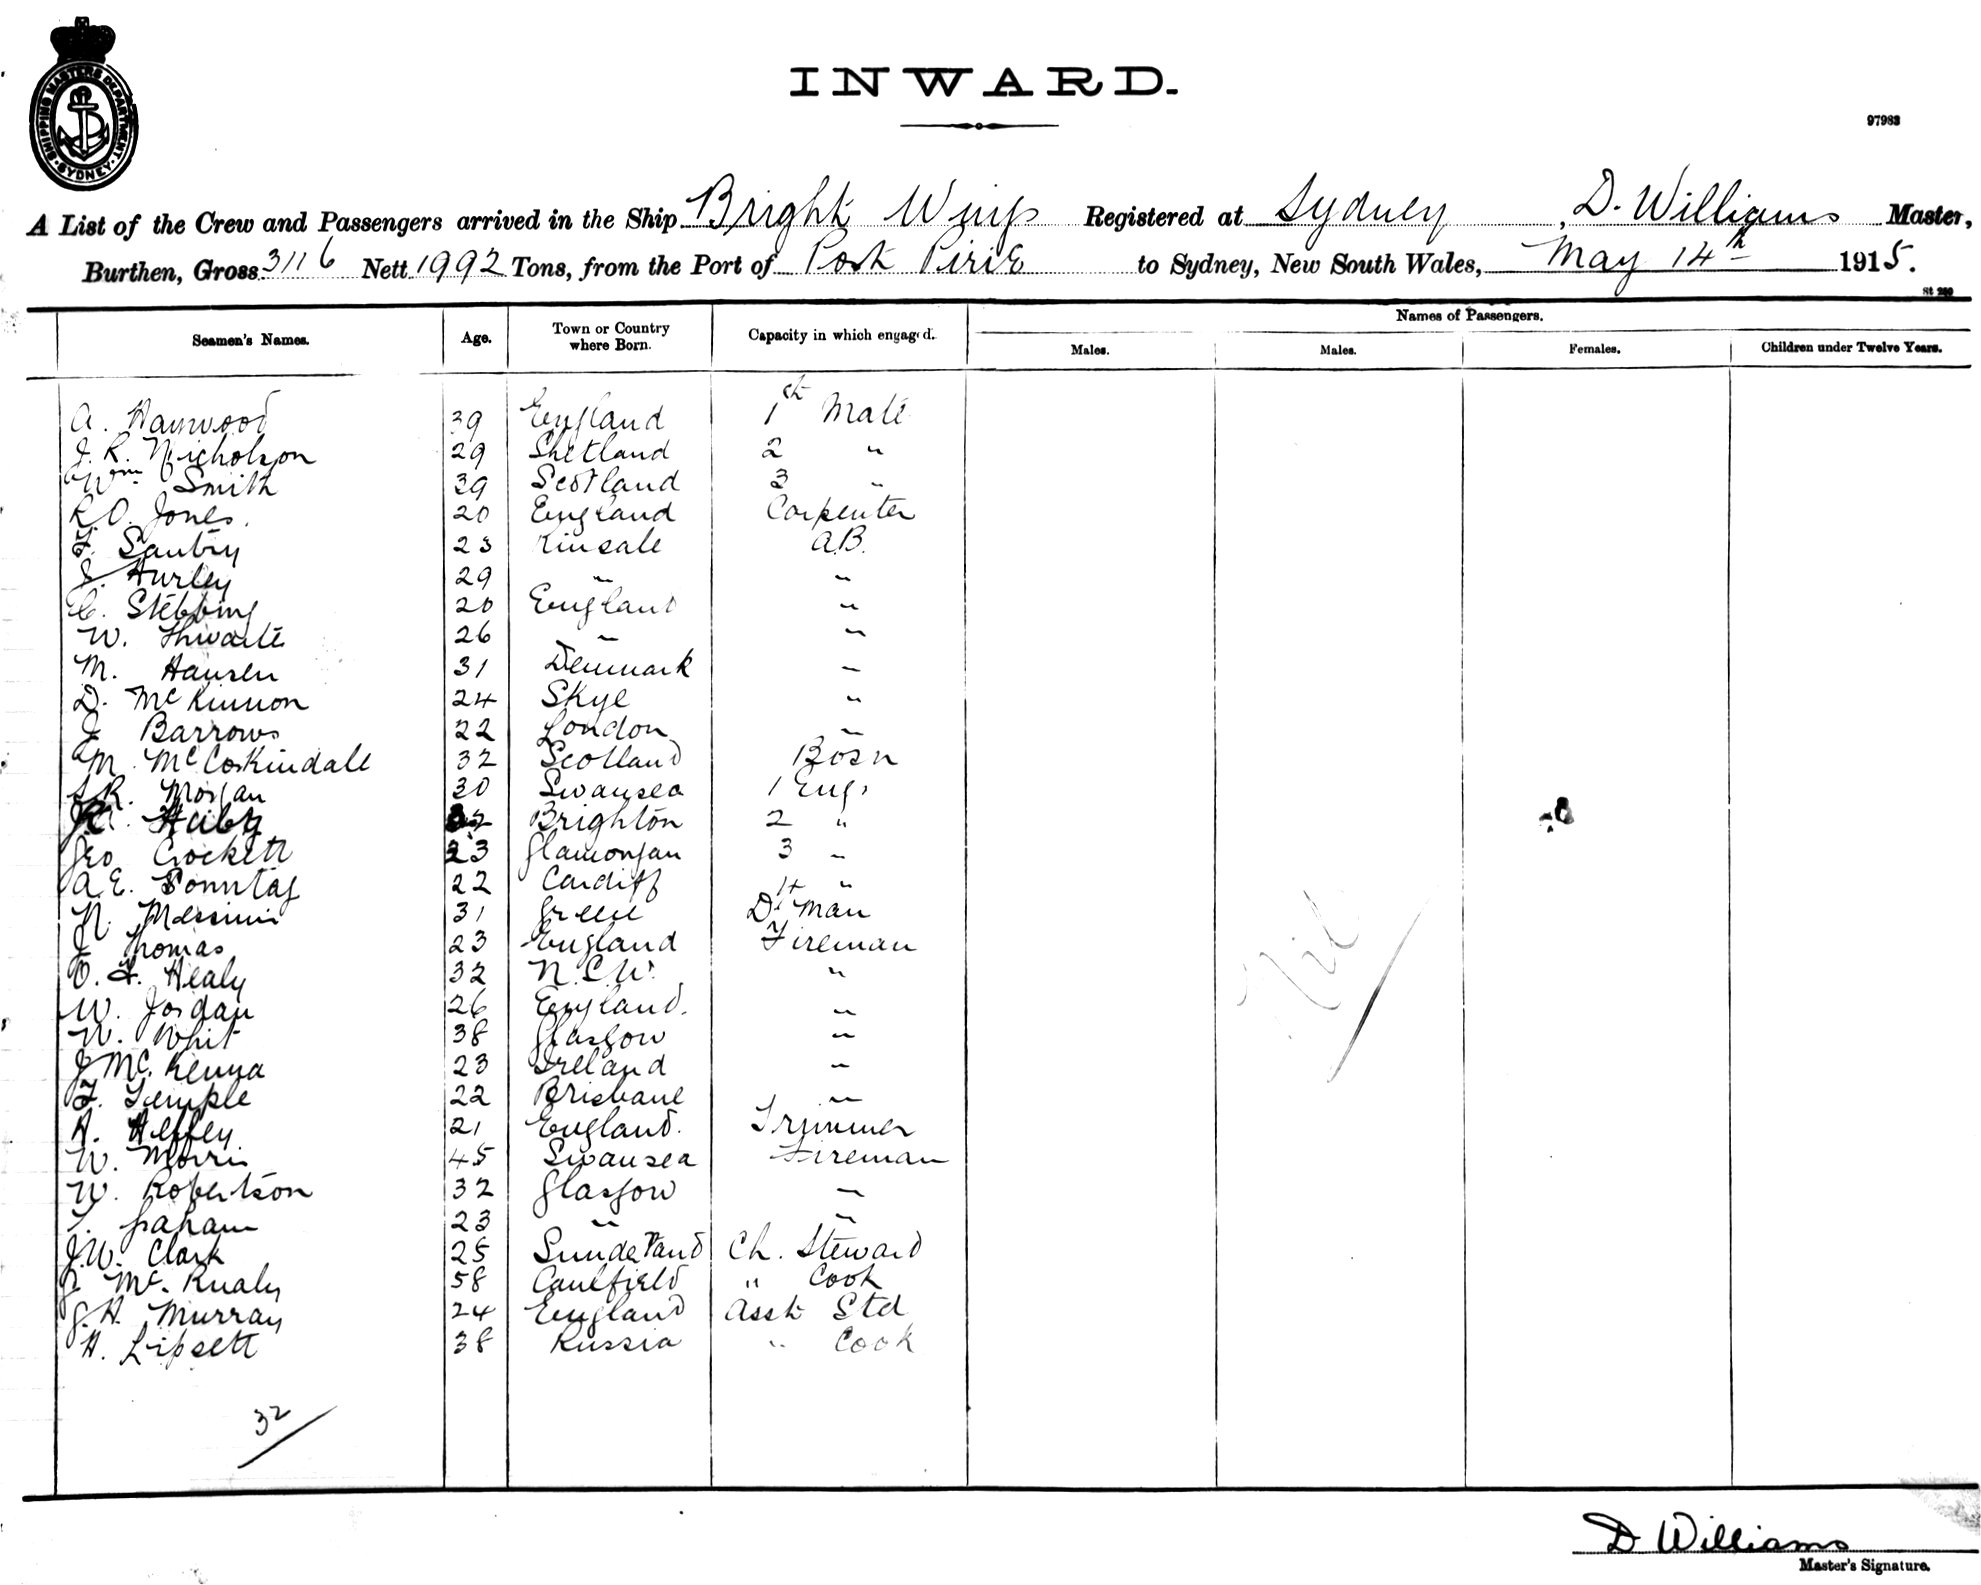 SHIPPING MASTERS DEPARTMENT. SYDNEY
INWARD.
97983
A List of the Crew and Passengers arrived in the Ship Bright Wings Registered at Sydney, D. Williams Master,
Burthen, Gross 3116 Nett 1992 Tons, from the Port of Port Pirie to Sydney, New South Wales, May 14th 1915.
St 260
Seamen's Names. Age. Town or Country where Born. Capacity in which engaged. Names of Passengers.
Males. Males. Females. Children under Twelve Years.
A. Hanwood 39 England 1st Mate
J. R. Nicholson 29 Shetland 2 "
Wm Smith 39 Scotland 3 "
R.O. Jones. 20 England Carpenter
T. Santry 23 Kinsale A.B.
J. Hurley 29 " "
C. Stebbing 20 England "
W. Thwaite 26 " "
M. Hansen 31 Denmark "
D. McKinnon 24 Skye "
J Barrows 22 London "
M. McCorkindale 32 Scotland Bosn
R. Morgan 30 Swansea 1 Eng.
Brighton 2 "
Geo Crockett 23 Glamorgan 3 "
A.E. Sonntag 22 Cardiff 4 "
N. Messinis 31 Greece D. Man
J. Thomas 23 England Fireman
O. H. Healy 32 N.S.W. "
W. Jordan 26 England. "
W. Whit 38 Glasgow "
J McKenna 23 Ireland "
F. Temple 22 Brisbane "
H. Heffey 21 England. Trimmer
W. Morris 45 Swansea Fireman
W. Robertson 32 Glasgow "
T. Graham 23 " "
J.W. Clark 25 Sunderland Ch. Steward
J. Mc. 58 Caulfield " Cook
G. H. Murray 24 England Asst Std
H. Lipsett 38 Russia " Cook
Nil
32
D Williams
Master's Signature.